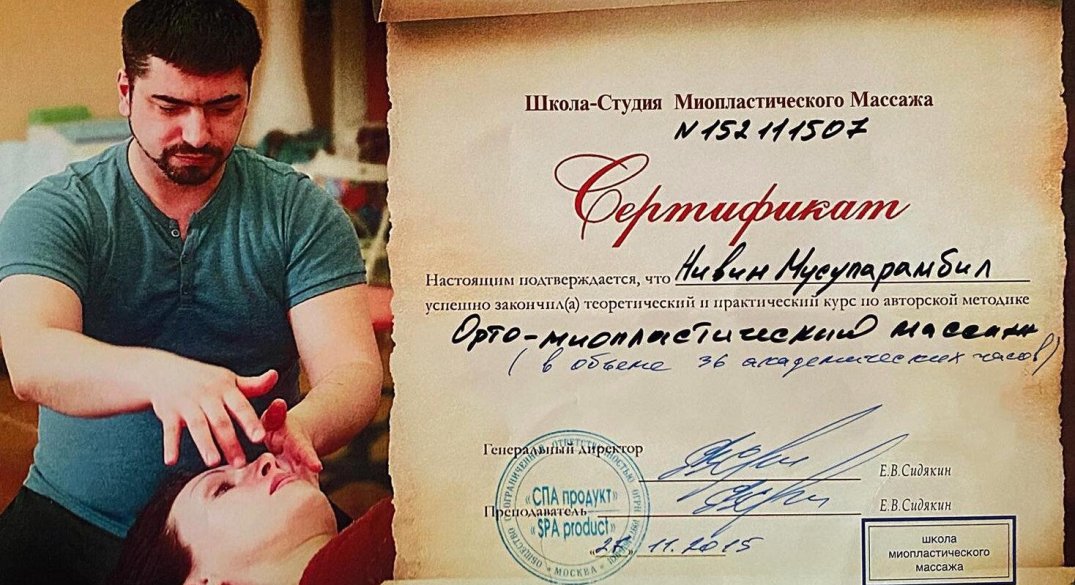 Школа-Студия Миопластического Массажа
N152111507
Сертификат
Настоящим подтверждается, что Нивин Мусупарамбил
успешно закончил(а) теоретический и практический курс по авторской методике
Орто-миопластический массаж
(в объеме 36 академических часов)
Генеральный директор
Е.В.Сидякин
Преподаватель
Е.В.Сидякин
ОБЩЕСТВО С ОГРАНИЧЕННОЙ ОТВЕТСТВЕННОСТЬЮ
«СПА продукт»
"SPA product"
МОСКВА
11.2015
школа
миопластического
массажа